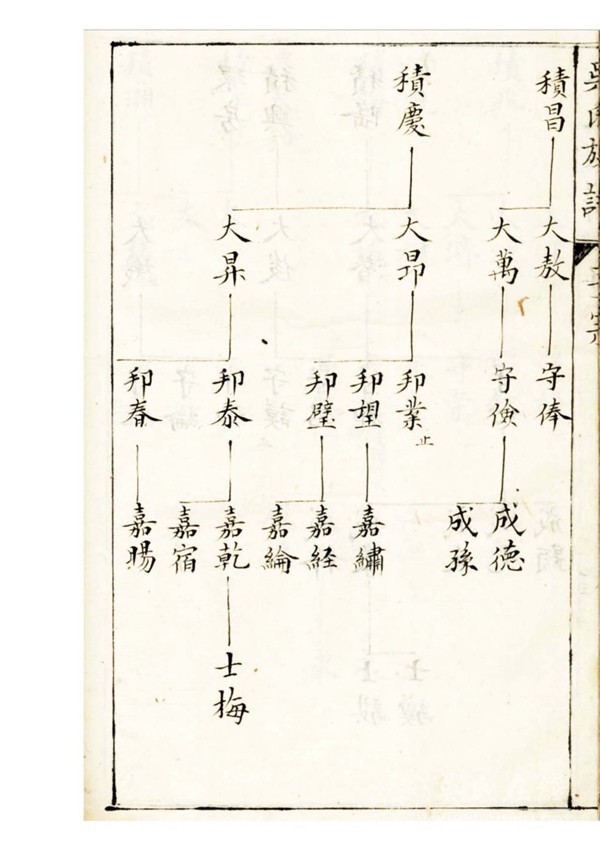 吳氏族譜
積昌
積慶
大敖
大萬
大昂
大昇
守俸
守儉
邦業
止
邦望
邦璧
邦泰
邦春
成德
成孫
嘉繡
嘉経
嘉綸
嘉乾
嘉宿
嘉賜
士梅